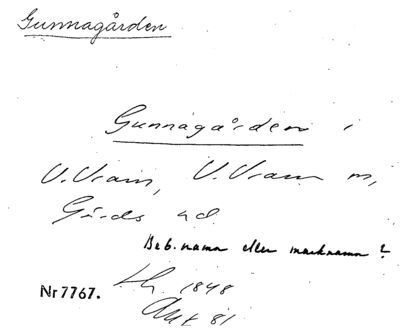 Gunnagården
Gunnagården i
V. Vram, V. Vram sn,
Gärds hd.
Beb.namn eller marknamn?
Nr 7767. Lh. 1848
Akt 81